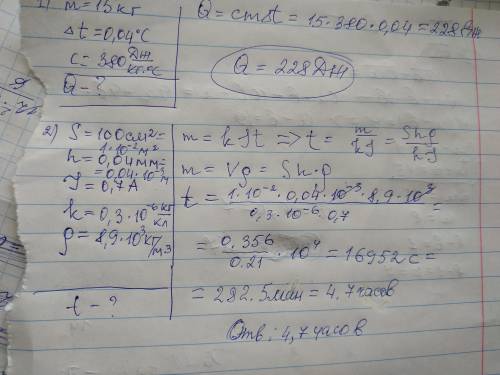 1) m = 15 кг
Δt = 0,04°C
c = 380 Дж/кг·°C
Q - ?
Q = cmΔt = 15·380·0,04 = 228 Дж
Q = 228 Дж
2) S = 100 см² =
1·10⁻² м²
h = 0,04 мм =
= 0,04·10⁻³ м
I = 0,7 А
k = 0,3·10⁻⁶ кг/кл
ρ = 8,9·10³ кг/м3
t - ?
m = kIt => t = m/kI = Shρ/kI
m = Vρ = Sh·ρ
t = 1·10⁻²·0,04·10⁻³·8,9·10³/0,3·10⁻⁶·0,7 =
= 0,356/0.21 · 10⁴ = 16952 с =
= 282.5 мин = 4,7 часов
Отв: 4,7 часов